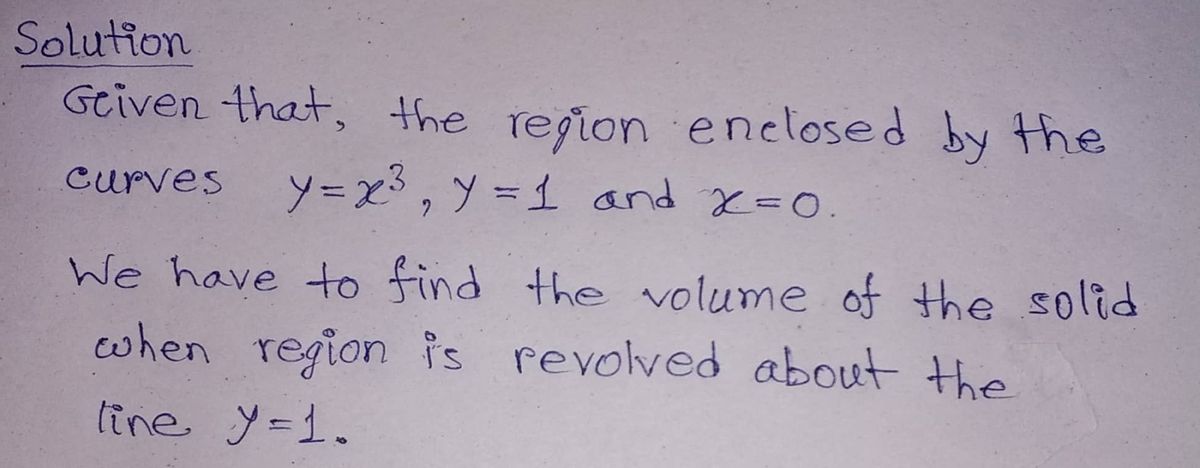 Solution
Given that, the region enclosed by the
curves y=x³, y=1 and x=0.
We have to find the volume of the solid
when region is revolved about the
line y=1.